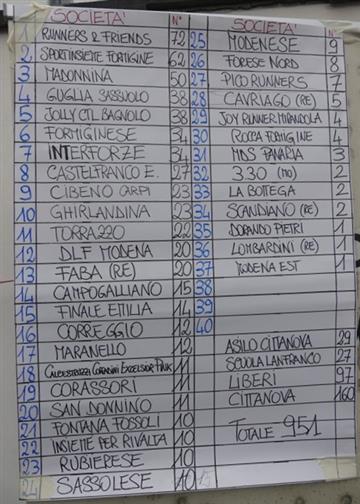 SOCIETA' N°
1 RUNNERS & FRIENDS 72
2 SPORTINSIEME FORMIGINE 62
3 MADONNINA 50
4 GUGLIA SASSUOLO 38
5 JOLLY CTL BAGNOLO 38
6 FORMIGINESE 34
7 INTERFORZE 34
8 CASTELFRANCO E. 27
9 CIBENO CARPI 23
10 GHIRLANDINA 23
11 TORRAZZO 22
12 DLF MODENA 20
13 FABA (RE) 20
14 CAMPOGALLIANO 15
15 FINALE EMILIA 14
16 CORREGGIO 12
17 MARANELLO 12
18 EXCELSIOR 11
19 CORASSORI 11
20 SAN DONNINO 11
21 FONTANA FOSSOLI 10
22 INSIEME PER RIVALTA 10
23 RUBIERESE 10
24 SASSOLESE 10
SOCIETA' N°
25 MODENESE 9
26 FORESE NORD 8
27 PICO RUNNERS 7
28 CAVRIAGO (RE) 5
29 JOY RUNNER MIRANDOLA 4
30 ROCCA FORMIGINE 4
31 MDS PANARIA 3
32 3.30 (MO) 2
33 LA BOTTEGA 2
34 SCANDIANO (RE) 2
35 DORANDO PIETRI 1
36 LOMBARDINI (RE) 1
37 MODENA EST 1
38
39
40
ASILO CITTANOVA 29
SCUOLA LANFRANCO 27
LIBERI 97
CITTANOVA 160
TOTALE 951